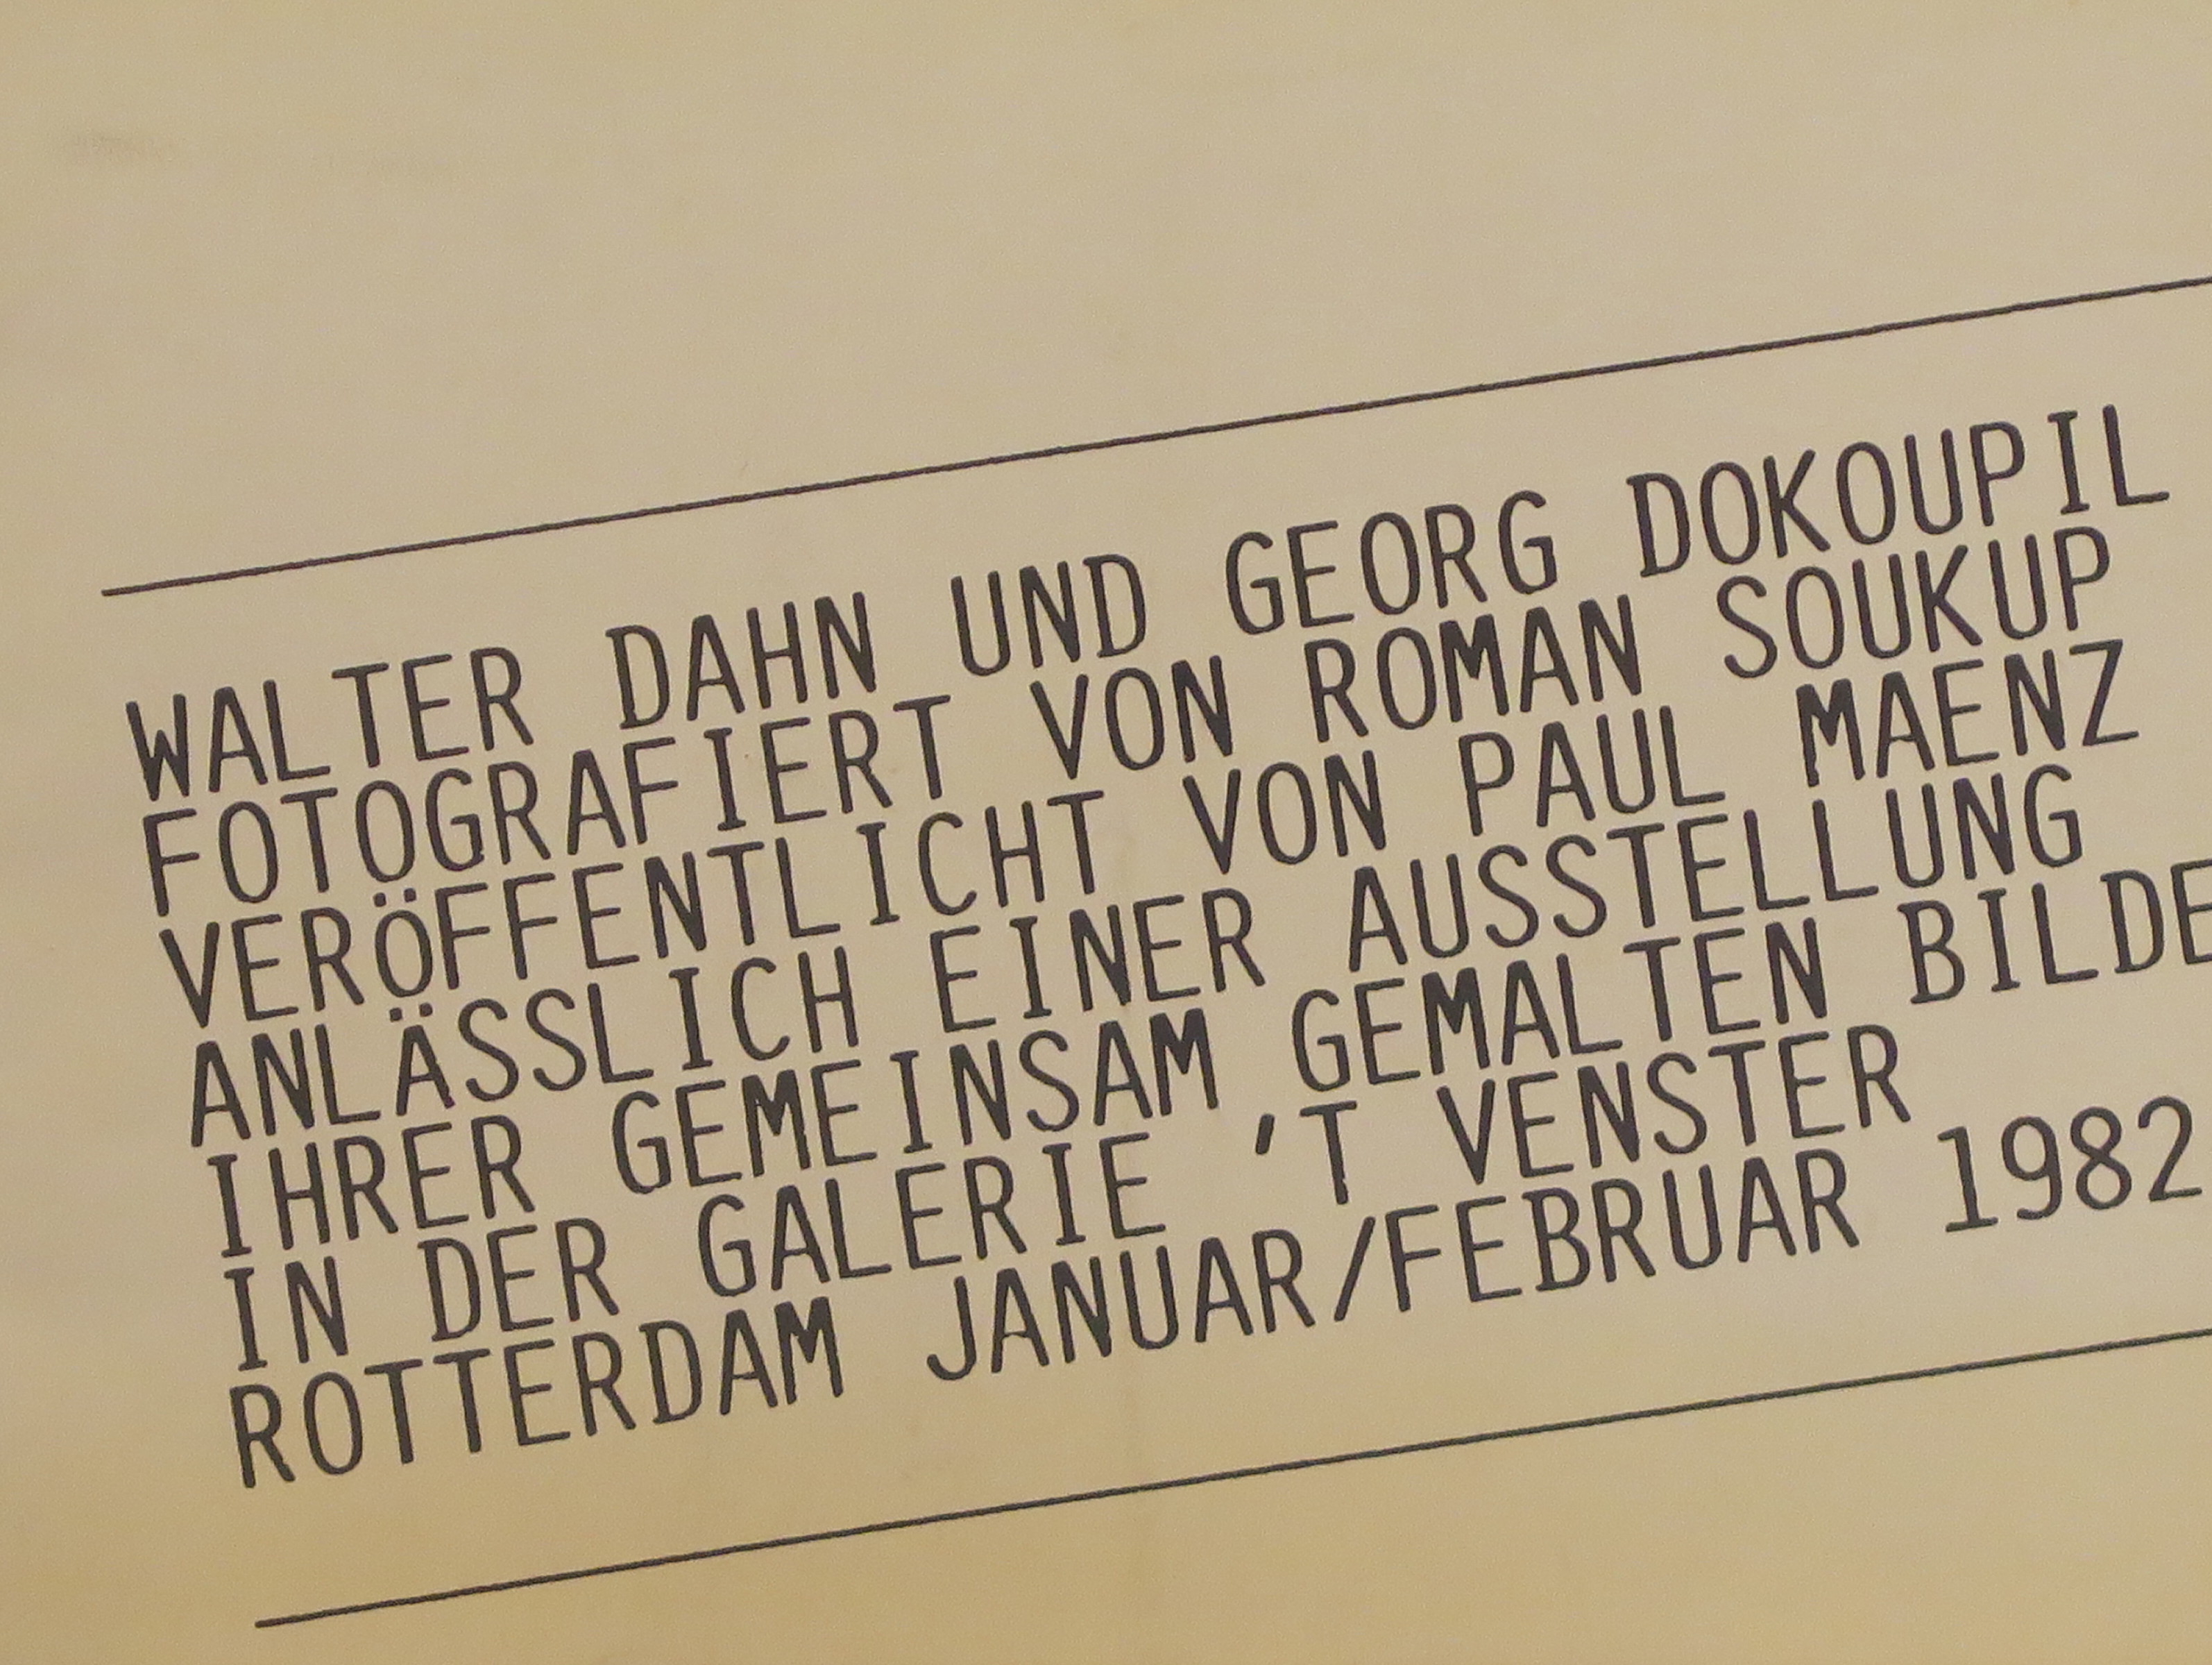 WALTER DAHN UND GEORG DOKOUPIL
FOTOGRAFIERT VON ROMAN SOUKUP
VERÖFFENTLICHT VON PAUL MAENZ
ANLÄSSLICH EINER AUSSTELLUNG
IHRER GEMEINSAM GEMALTEN BILDE
IN DER GALERIE 'T VENSTER
ROTTERDAM JANUAR/FEBRUAR 1982